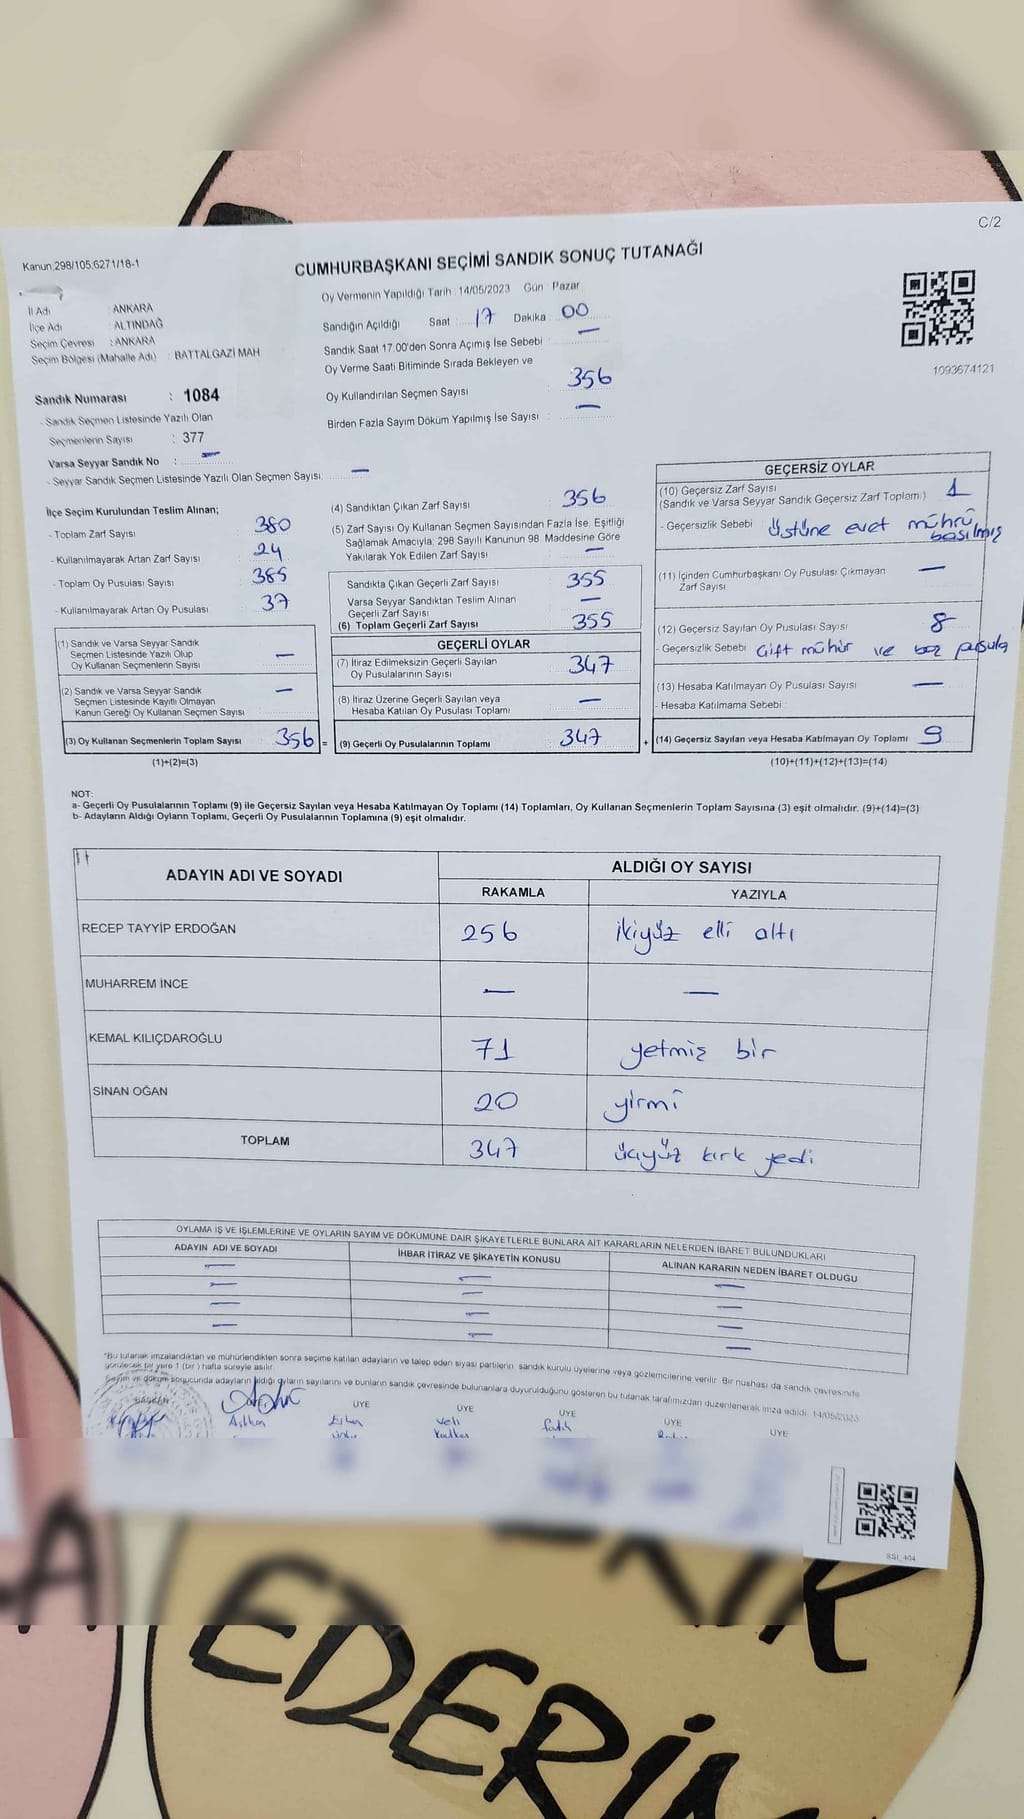 C/2
Kanun:298/105,6271/18-1
CUMHURBAŞKANI SEÇİMİ SANDIK SONUÇ TUTANAĞI
Oy Vermenin Yapıldığı Tarih : 14/05/2023 Gün : Pazar
İl Adı : ANKARA
İlçe Adı : ALTINDAĞ
Seçim Çevresi : ANKARA
Seçim Bölgesi (Mahalle Adı) : BATTALGAZİ MAH.
Sandık Numarası : 1084
- Sandık Seçmen Listesinde Yazılı Olan
Seçmenlerin Sayısı : 377
Varsa Seyyar Sandık No : —
- Seyyar Sandık Seçmen Listesinde Yazılı Olan Seçmen Sayısı —
Sandığın Açıldığı Saat : 17 Dakika : 00
Sandık Saat 17.00'den Sonra Açımış İse Sebebi : —
Oy Verme Saati Bitiminde Sırada Bekleyen ve
Oy Kullandırılan Seçmen Sayısı : 356
Birden Fazla Sayım Döküm Yapılmış İse Sayısı : —
1093674121
İlçe Seçim Kurulundan Teslim Alınan;
- Toplam Zarf Sayısı 380
- Kullanılmayarak Artan Zarf Sayısı 24
- Toplam Oy Pusulası Sayısı 385
- Kullanılmayarak Artan Oy Pusulası 37
(1) Sandık ve Varsa Seyyar Sandık
Seçmen Listesinde Yazılı Olup
Oy Kullanan Seçmenlerin Sayısı —
(2) Sandık ve Varsa Seyyar Sandık
Seçmen Listesinde Kayıtlı Olmayan
Kanun Gereği Oy Kullanan Seçmen Sayısı —
(3) Oy Kullanan Seçmenlerin Toplam Sayısı 356 =
(1)+(2)=(3)
(4) Sandıktan Çıkan Zarf Sayısı 356
(5) Zarf Sayısı Oy Kullanan Seçmen Sayısından Fazla İse, Eşitliği
Sağlamak Amacıyla, 298 Sayılı Kanunun 98. Maddesine Göre
Yakılarak Yok Edilen Zarf Sayısı —
Sandıkta Çıkan Geçerli Zarf Sayısı 355
Varsa Seyyar Sandıktan Teslim Alınan
Geçerli Zarf Sayısı —
(6) Toplam Geçerli Zarf Sayısı 355
GEÇERLİ OYLAR
(7) İtiraz Edilmeksizin Geçerli Sayılan
Oy Pusulalarının Sayısı 347
(8) İtiraz Üzerine Geçerli Sayılan veya
Hesaba Katılan Oy Pusulası Toplamı —
(9) Geçerli Oy Pusulalarının Toplamı 347 +
GEÇERSİZ OYLAR
(10) Geçersiz Zarf Sayısı
(Sandık ve Varsa Seyyar Sandık Geçersiz Zarf Toplamı) 1
- Geçersizlik Sebebi Üstüne evet mührü
basılmış
(11) İçinden Cumhurbaşkanı Oy Pusulası Çıkmayan
Zarf Sayısı —
(12) Geçersiz Sayılan Oy Pusulası Sayısı 8
- Geçersizlik Sebebi Çift mühür ve boş pusula
(13) Hesaba Katılmayan Oy Pusulası Sayısı —
- Hesaba Katılmama Sebebi
(14) Geçersiz Sayılan veya Hesaba Katılmayan Oy Toplamı 9
(10)+(11)+(12)+(13)=(14)
NOT:
a- Geçerli Oy Pusulalarının Toplamı (9) ile Geçersiz Sayılan veya Hesaba Katılmayan Oy Toplamı (14) Toplamları, Oy Kullanan Seçmenlerin Toplam Sayısına (3) eşit olmalıdır. (9)+(14)=(3)
b- Adayların Aldığı Oyların Toplamı, Geçerli Oy Pusulalarının Toplamına (9) eşit olmalıdır.
ADAYIN ADI VE SOYADI
ALDIĞI OY SAYISI
RAKAMLA YAZIYLA
RECEP TAYYİP ERDOĞAN 256 ikiyüz elli altı
MUHARREM İNCE — —
KEMAL KILIÇDAROĞLU 71 yetmiş bir
SİNAN OĞAN 20 yirmi
TOPLAM 347 üçyüz kırk yedi
OYLAMA İŞ VE İŞLEMLERİNE VE OYLARIN SAYIM VE DÖKÜMÜNE DAİR ŞİKAYETLERLE BUNLARA AİT KARARLARIN NELERDEN İBARET BULUNDUKLARI
ADAYIN ADI VE SOYADI İHBAR İTİRAZ VE ŞİKAYETİN KONUSU ALINAN KARARIN NEDEN İBARET OLDUĞU
— — —
— — —
— — —
— — —
*Bu tutanak imzalandıktan ve mühürlendikten sonra seçime katılan adayların ve talep eden siyasi partilerin sandık kurulu üyelerine veya gözlemcilerine verilir. Bir nüshası da sandık çevresinde
görülecek bir yere 1 (bir) hafta süreyle asılır.
Sayım ve döküm sonucunda adayların aldığı oyların sayılarını ve bunların sandık çevresinde bulunanlara duyurulduğunu gösteren bu tutanak tarafımızdan düzenlenerek imza edildi. 14/05/2023
BAŞKAN ÜYE ÜYE ÜYE ÜYE ÜYE
Veli Fatih
SSİ_404
EDERİM